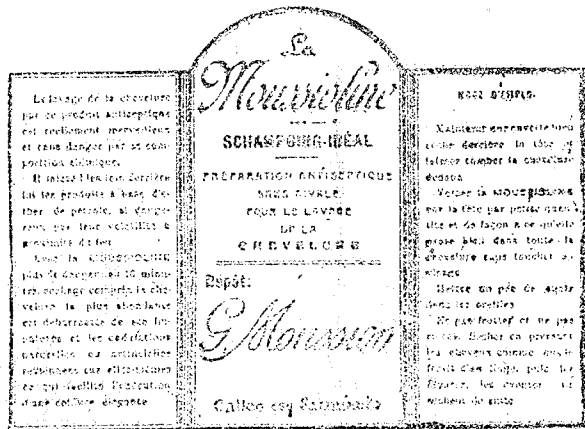 Le lavage de la chevelure
par ce produit antiseptique
est réellement merveilleux
et sans danger par sa com-
position chimique.
Il laisse bien loin derrière
lui les produits à base d'é-
ther de pétrole, si dange-
reux par leur volatilité à
proximité du feu.
Avec la MOUSSIOLINE
plus de danger, en 10 minu-
tes, séchage compris, la che-
velure la plus abondante
est débarrassée de ses im-
puretés et les ondulations
naturelles ou artificielles
ce qui facilite l'exécution
d'une coiffure élégante
La
Moussioline
SCHAMPOING-IDÉAL
PRÉPARATION ANTISEPTIQUE
SANS RIVALE
POUR LE LAVAGE
DE LA
CHEVELURE
Dépôt:
G. Moussion
Calleo esq Sarmiento
MODE D'EMPLOI.
Maintenir une cuvette
derrière la tête et
laisser tomber la chevelure
dedans
Verser la MOUSSIOLINE
sur la tête par petite quan-
tité et de façon à ce qu'elle
mousse bien dans toute la
chevelure sans toucher au
visage
Mettre un peu de ouate
dans les oreilles
Ne pas frotter et ne pas
les cheveux comme